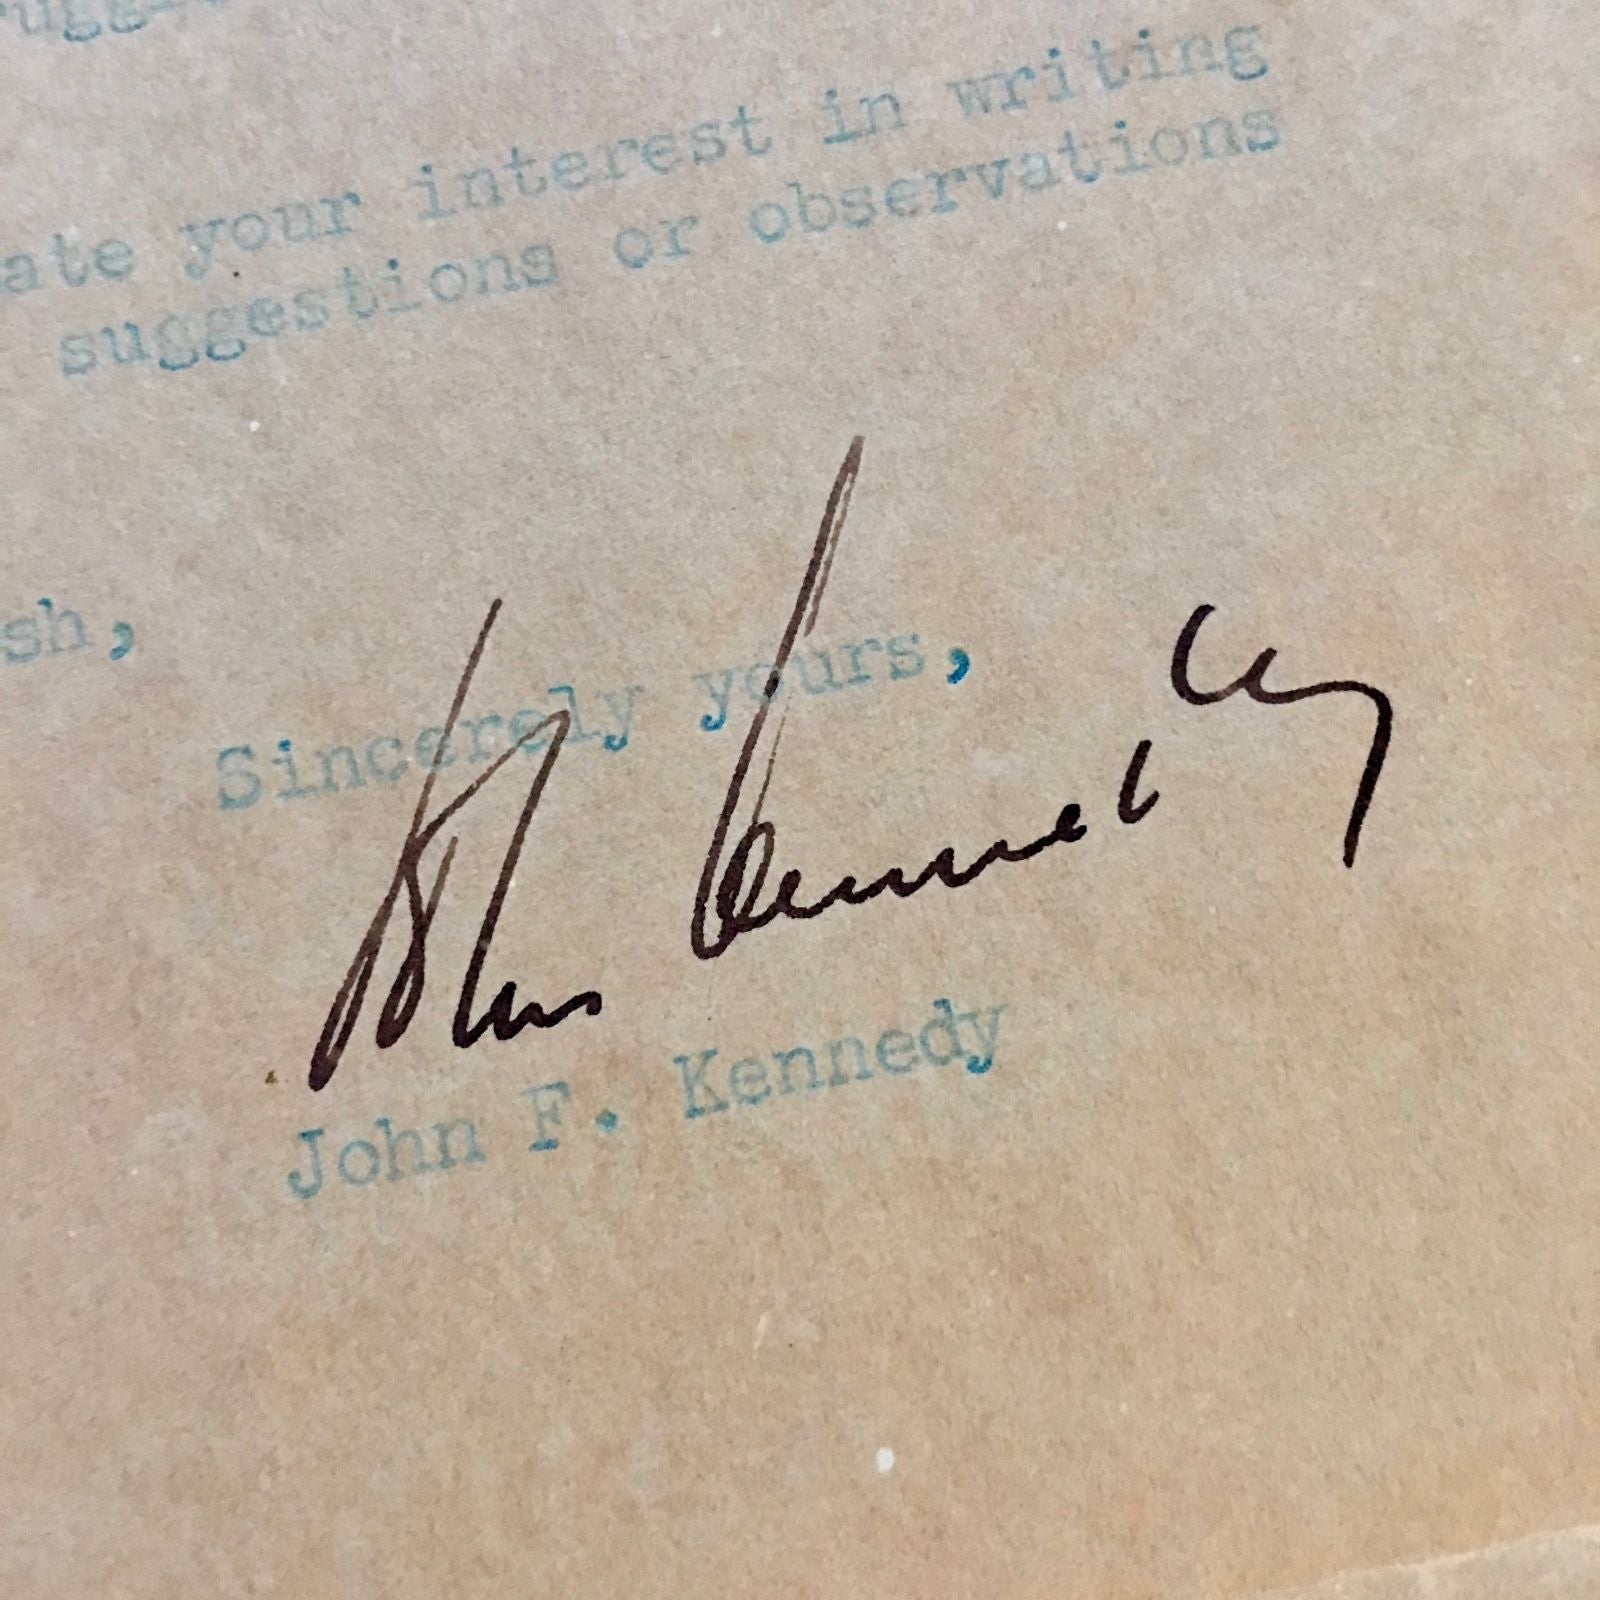 ate your interest in writing
suggestions or observations
sh,
Sincerely yours,
John F. Kennedy